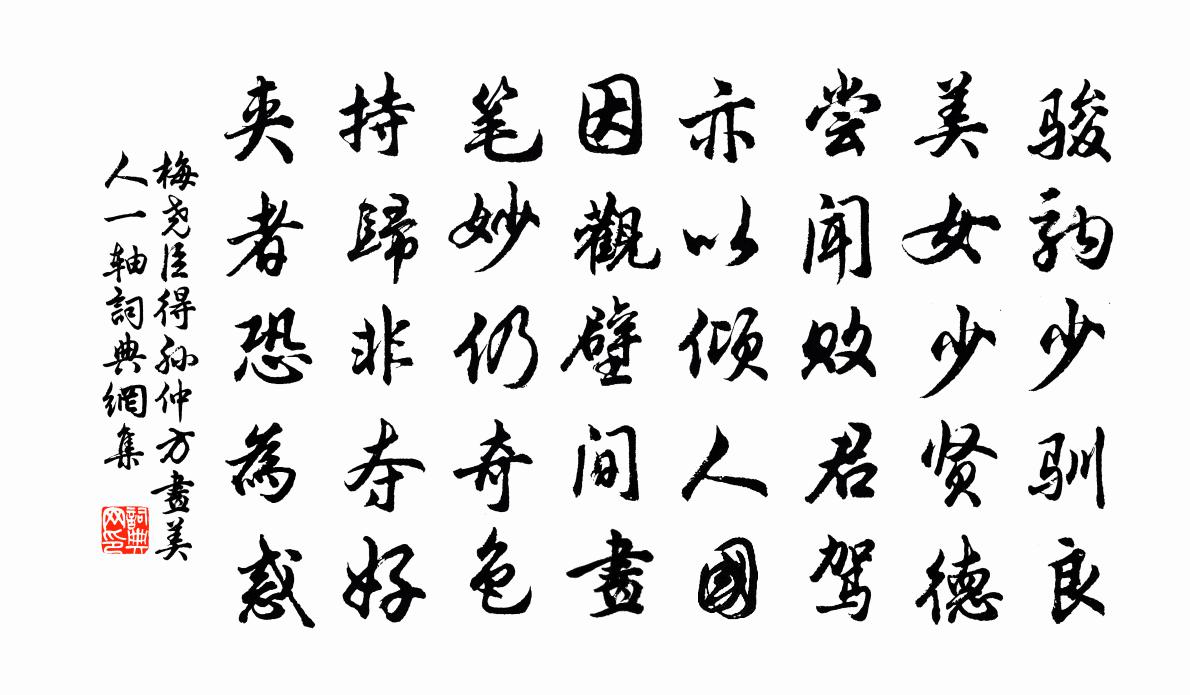 骏驹少驯良
美女少贤德
尝闻败君驾
亦以倾人國
因觀壁间畫
笔妙仍奇色
持歸非夺好
来者恐為惑
梅尧臣得孙仲方畫美
人一轴詞典網集
詞典
网印